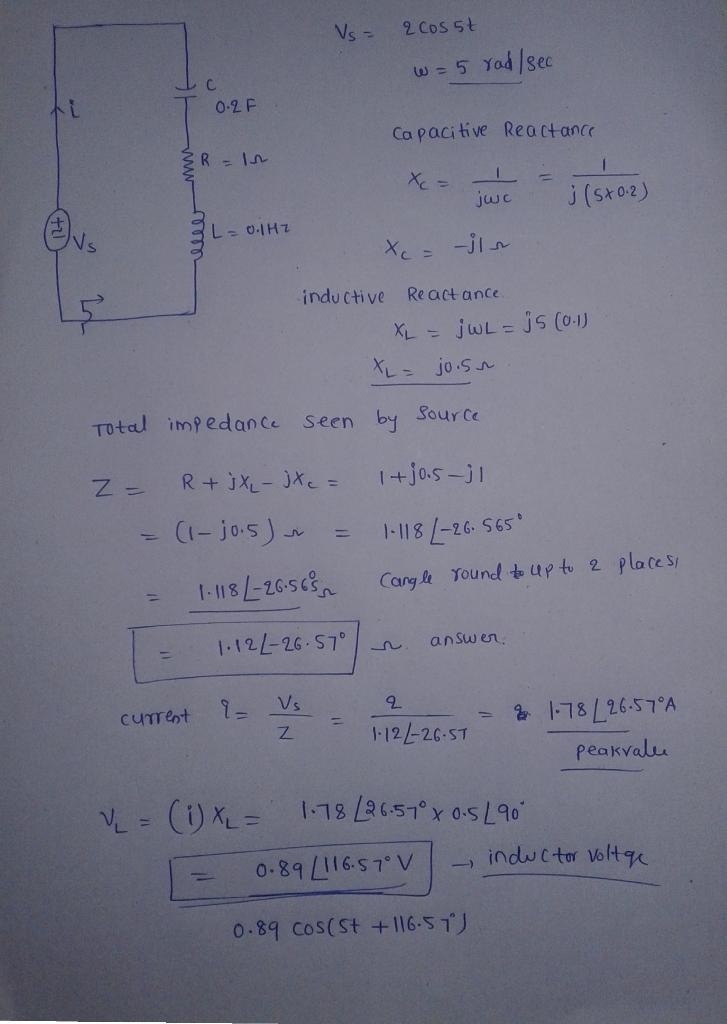 Vs = 2 cos 5t
w = 5 rad/sec
C
0.2 F
i
R = 1Ω
L = 0.1Hz
+
Vs
Capacitive Reactance
Xc = 1/jwc = 1/j(5x0.2)
Xc = -j1 Ω
inductive Reactance
XL = jwL = j5 (0.1)
XL = j0.5 Ω
Total impedance seen by Source
Z = R + jXL - jXc = 1+j0.5-j1
= (1-j0.5) Ω = 1.118 ∠-26.565°
= 1.118 ∠-26.565° Ω (angle round to up to 2 places)
= 1.12 ∠-26.57° Ω answer.
current i = Vs/Z = 2/1.12∠-26.57 = 1.78 ∠26.57° A
peakvalu
VL = (i) XL = 1.78 ∠26.57° x 0.5 ∠90°
= 0.89 ∠116.57° V → inductor voltge
0.89 cos(5t + 116.57°)